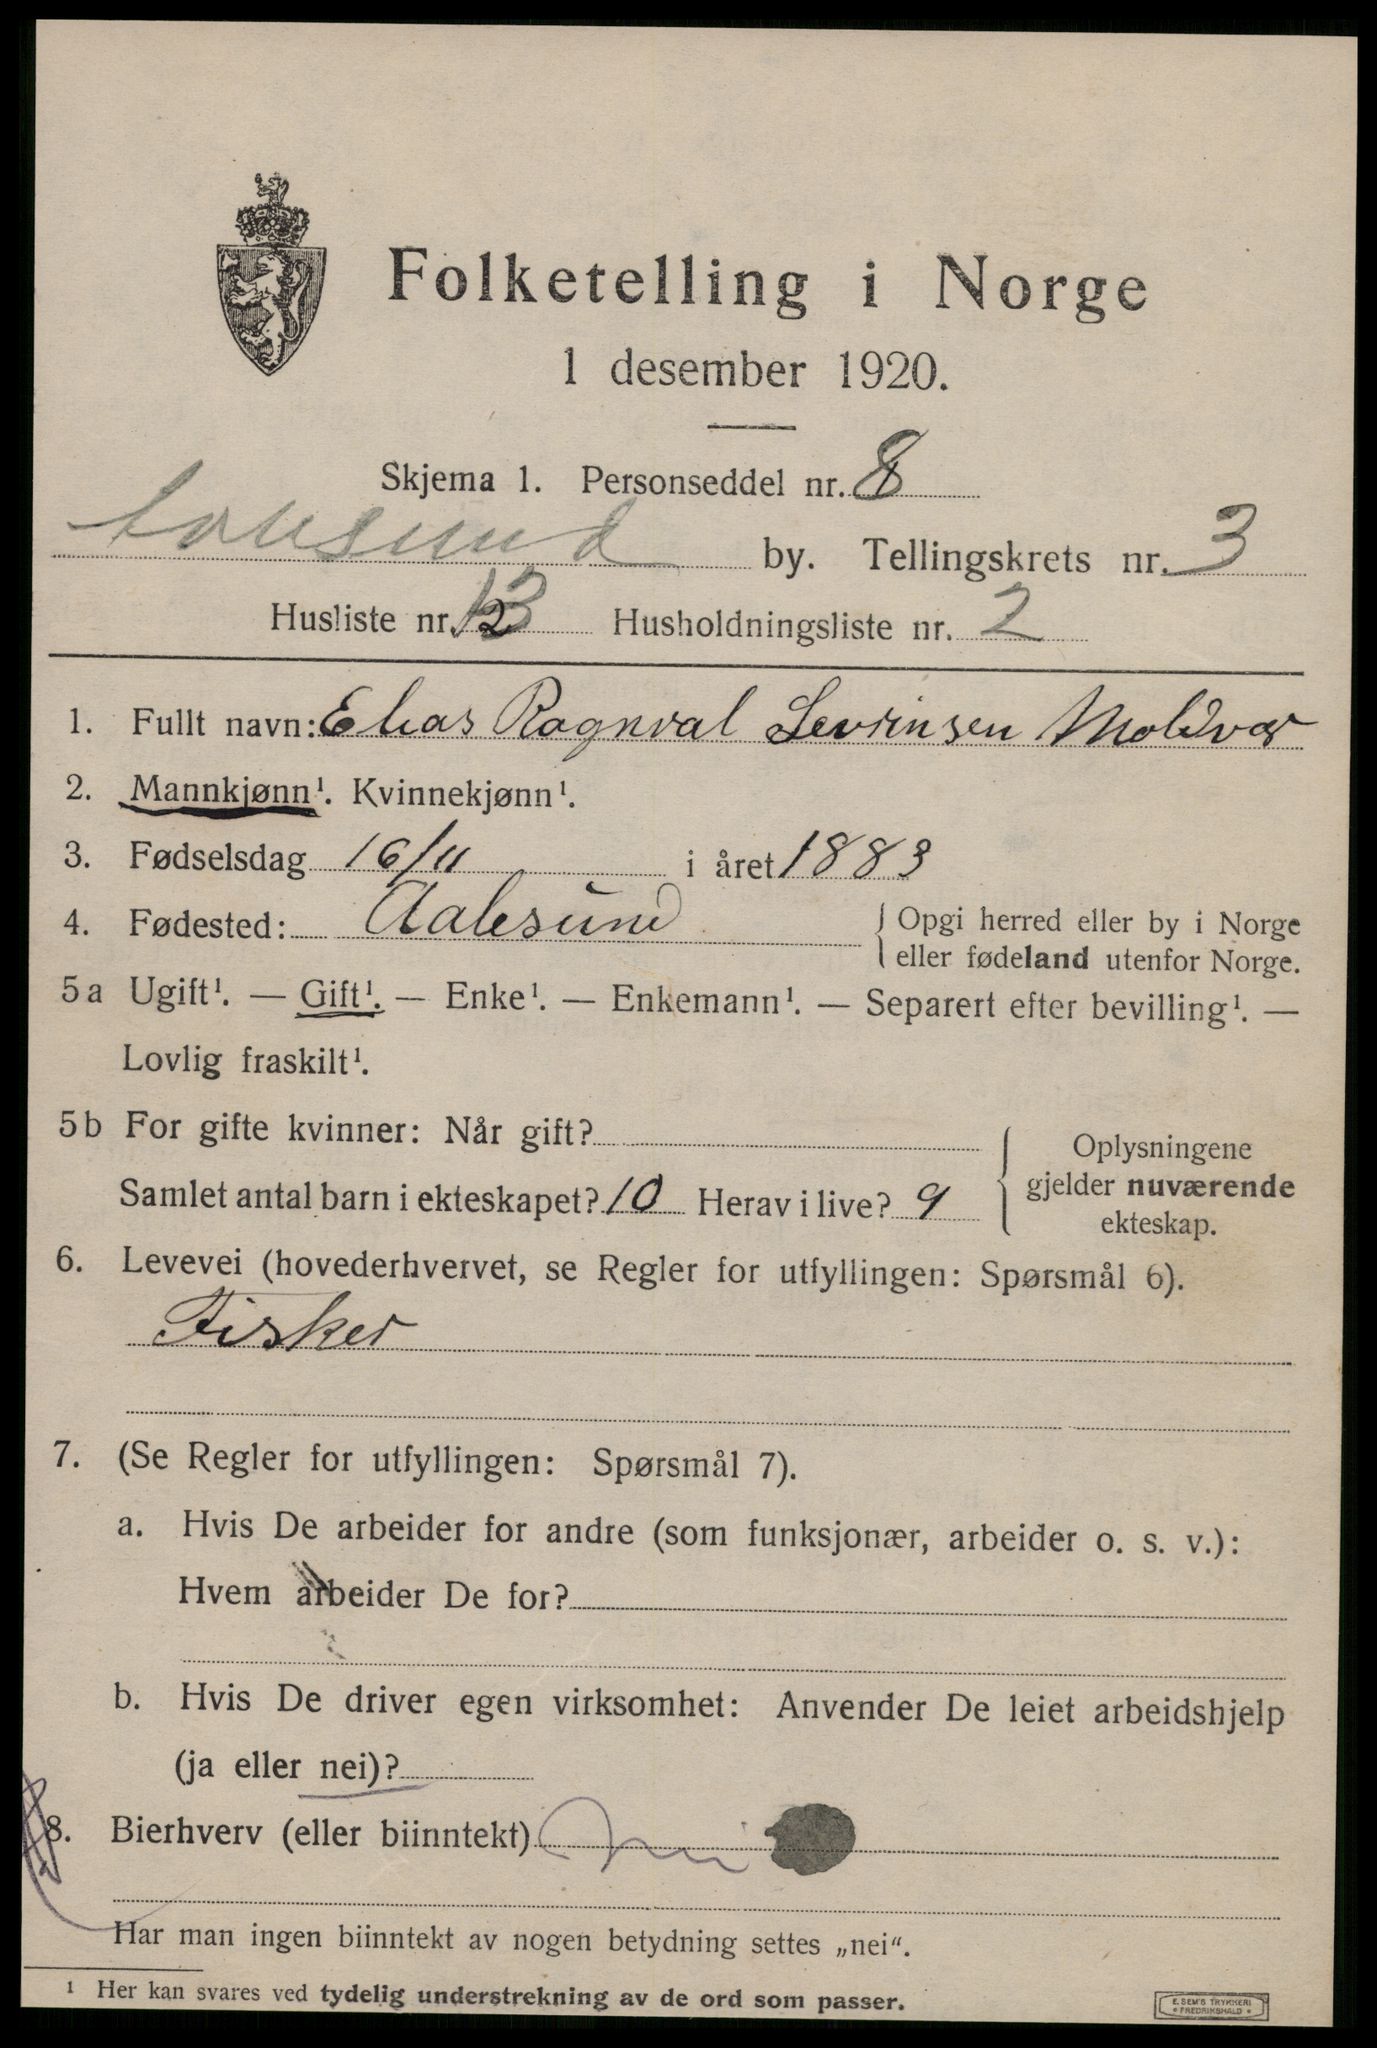 Folketelling i Norge
1 desember 1920.
Skjema 1. Personseddel nr. 8
by. Tellingskrets nr. 3
Husliste nr. Husholdningsliste nr. 2
1. Fullt navn: Elias Ragnval Sevrinsen Moldvær
2. Mannkjønn¹. Kvinnekjønn¹.
3. Fødselsdag 16/11 i året 1883
4. Fødested: Aalesund { Opgi herred eller by i Norge
eller fødeland utenfor Norge.
5a Ugift¹. — Gift¹. — Enke¹. — Enkemann¹. — Separert efter bevilling¹. —
Lovlig fraskilt¹.
5b For gifte kvinner: Når gift?
Samlet antal barn i ekteskapet? 10 Herav i live? 9
Oplysningene
gjelder nuværende
ekteskap.
6. Levevei (hovederhvervet, se Regler for utfyllingen: Spørsmål 6).
Fisker
7. (Se Regler for utfyllingen: Spørsmål 7).
a. Hvis De arbeider for andre (som funksjonær, arbeider o. s. v.):
Hvem arbeider De for?
b. Hvis De driver egen virksomhet: Anvender De leiet arbeidshjelp
(ja eller nei)?
8. Bierhverv (eller biinntekt) nei
Har man ingen biinntekt av nogen betydning settes „nei“.
¹ Her kan svares ved tydelig understrekning av de ord som passer.
E. SEM'S TRYKKERI
FREDRIKSHALD